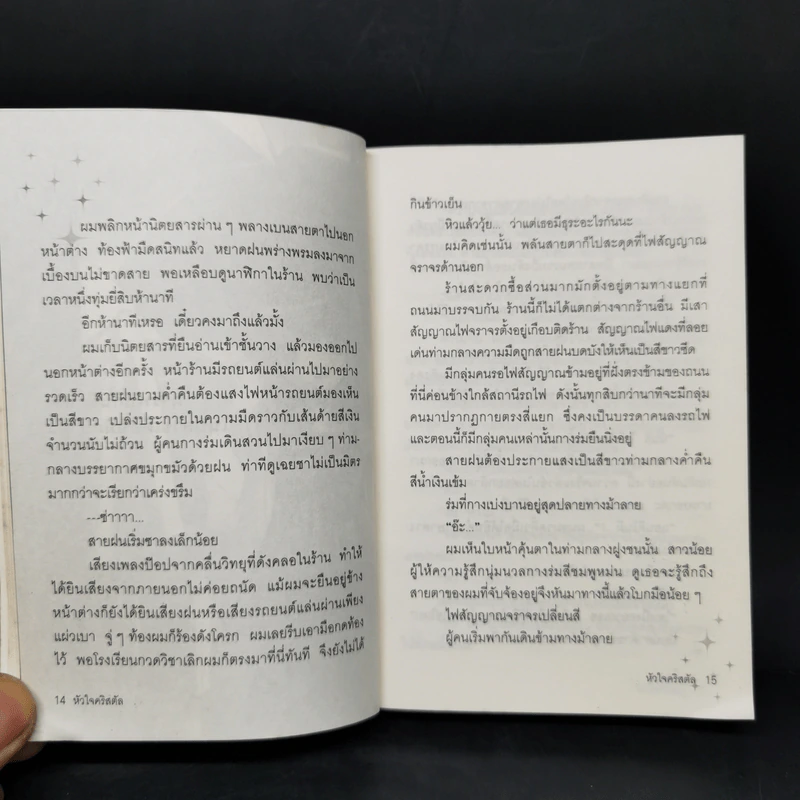 ผมพลิกหน้านิตยสารผ่าน ๆ พลางเบนสายตาไปนอก
หน้าต่าง ท้องฟ้ามืดสนิทแล้ว หยาดฝนพร่างพรมลงมาจาก
เบื้องบนไม่ขาดสาย พอเหลือบดูนาฬิกาในร้าน พบว่าเป็น
เวลาหนึ่งทุ่มยี่สิบห้านาที
อีกห้านาทีเหรอ เดี๋ยวคงมาถึงแล้วมั้ง
ผมเก็บนิตยสารที่ยืนอ่านเข้าชั้นวาง แล้วมองออกไป
นอกหน้าต่างอีกครั้ง หน้าร้านมีรถยนต์แล่นผ่านไปมาอย่าง
รวดเร็ว สายฝนยามค่ำคืนต้องแสงไฟหน้ารถยนต์มองเห็น
เป็นสีขาว เปล่งประกายในความมืดราวกับเส้นด้ายสีเงิน
จำนวนนับไม่ถ้วน ผู้คนกางร่มเดินสวนไปมาเงียบ ๆ ท่าม-
กลางบรรยากาศขมุกขมัวด้วยฝน ท่าทีดูเฉยชาไม่เป็นมิตร
มากกว่าจะเรียกว่าเคร่งขรึม
---ซ่าาาา...
สายฝนเริ่มซาลงเล็กน้อย
เสียงเพลงป๊อปจากคลื่นวิทยุที่ดังคลอในร้าน ทำให้
ได้ยินเสียงจากภายนอกไม่ค่อยถนัด แม้ผมจะยืนอยู่ข้าง
หน้าต่างก็ยังได้ยินเสียงฝนหรือเสียงรถยนต์แล่นผ่านเพียง
แผ่วเบา จู่ ๆ ท้องผมก็ร้องดังโครก ผมเลยรีบเอามือกดท้อง
ไว้ พอโรงเรียนกวดวิชาเลิกผมก็ตรงมาที่นี่ทันที จึงยังไม่ได้
14 หัวใจคริสตัล
กินข้าวเย็น
หิวแล้ววุ้ย... ว่าแต่เธอมีธุระอะไรกันนะ
ผมคิดเช่นนั้น พลันสายตาก็ไปสะดุดที่ไฟสัญญาณ
จราจรด้านนอก
ร้านสะดวกซื้อส่วนมากมักตั้งอยู่ตามทางแยกที่
ถนนมาบรรจบกัน ร้านนี้ก็ไม่ได้แตกต่างจากร้านอื่น มีเสา
สัญญาณไฟจราจรตั้งอยู่เกือบติดร้าน สัญญาณไฟแดงที่ลอย
เด่นท่ามกลางความมืดถูกสายฝนบดบังให้เห็นเป็นสีขาวซีด
มีกลุ่มคนรอไฟสัญญาณข้ามอยู่ที่ฝั่งตรงข้ามของถนน
ที่นี่ค่อนข้างใกล้สถานีรถไฟ ดังนั้นทุกสิบกว่านาทีจะมีกลุ่ม
คนมาปรากฏกายตรงสี่แยก ซึ่งคงเป็นบรรดาคนลงรถไฟ
และตอนนี้ก็มีกลุ่มคนเหล่านั้นกางร่มยืนนิ่งอยู่
สายฝนต้องประกายแสงเป็นสีขาวท่ามกลางค่ำคืน
สีน้ำเงินเข้ม
ร่มที่กางเบ่งบานอยู่สุดปลายทางม้าลาย
"อ๊ะ..."
ผมเห็นใบหน้าคุ้นตาในท่ามกลางฝูงชนนั้น สาวน้อย
ผู้ให้ความรู้สึกนุ่มนวลกางร่มสีชมพูหม่น ดูเธอจะรู้สึกถึง
สายตาของผมที่จับจ้องอยู่จึงหันมาทางนี้แล้วโบกมือน้อย ๆ
ไฟสัญญาณจราจรเปลี่ยนสี
ผู้คนเริ่มพากันเดินข้ามทางม้าลาย
หัวใจคริสตัล 15